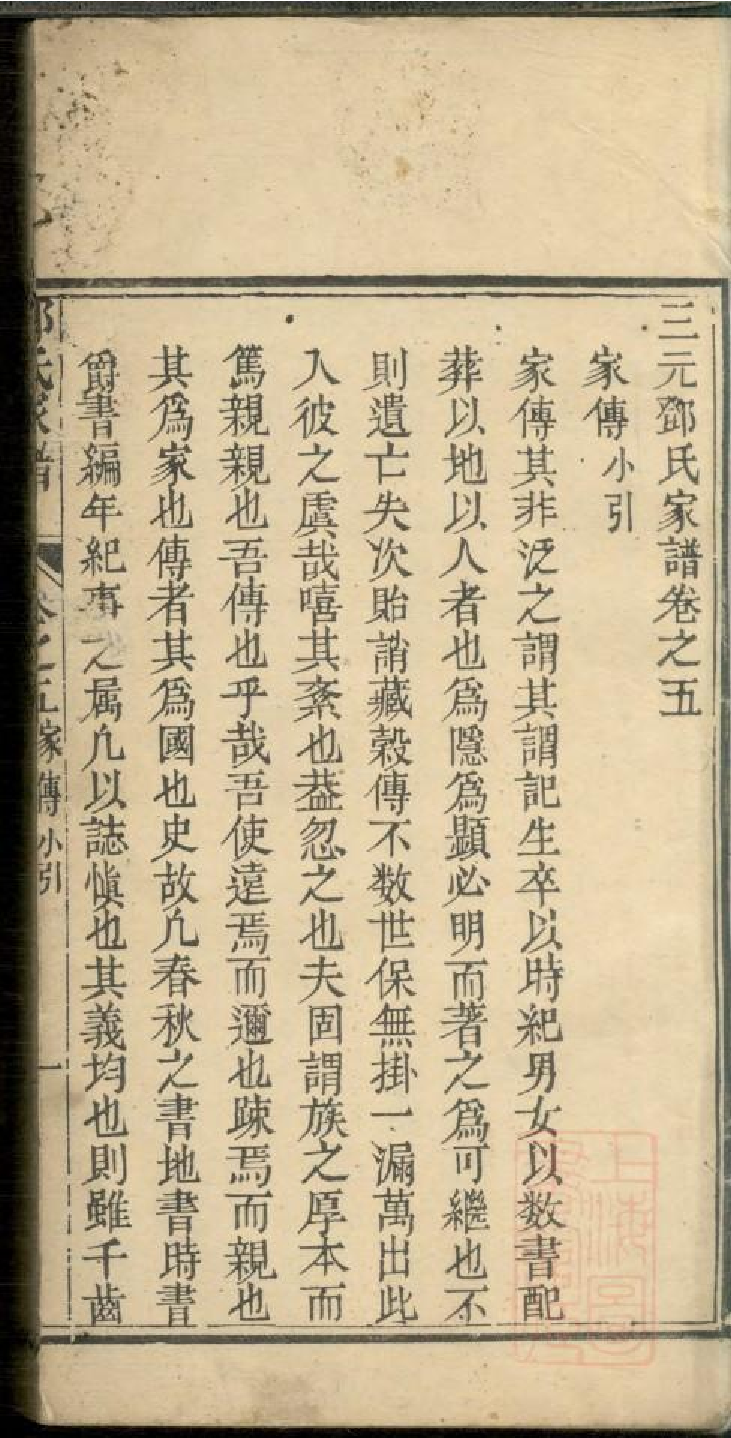 三元鄧氏家譜卷之五
家傳小引
家傳其非泛之謂其謂記生卒以時紀男女以数書配
葬以地以人者也爲隱爲顯必明而著之爲可繼也不
則遺亡失次貽誚藏穀傳不数世保無掛一漏萬出此
入彼之虞哉嘻其紊也葢忽之也夫固謂族之厚本而
篤親親也吾傳也乎哉吾使遠焉而邇也踈焉而親也
其爲家也傳者其爲國也史故凢春秋之書地書時書
爵書編年紀事之屬凢以誌愼也其義均也則雖千齒
鄧氏家譜 卷之五家傳小引 一
上海圖書館藏